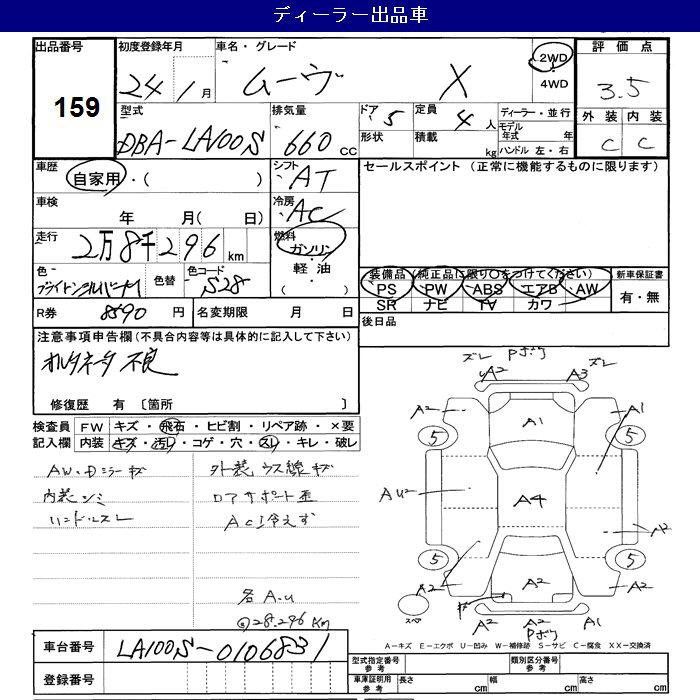 ディーラー出品車
出品番号
159
初度登録年月
24 1 月
車名・グレード
ムーヴ X
2WD
4WD
評価点
3.5
外装 内装
C C
型式
DBA-LA100S
排気量
660 CC
ドア 5
定員 4 人
形状
積載 kg
ディーラー・並行
モデル年式 年
ハンドル 左・右
車歴
自家用・( )
シフト
AT
車検
年 月( 日)
冷房
AC
走行
2万8千296 km
燃料
ガソリン
軽油
( )
色
色替
色コード
S28
R券 8590 円
名変期限 月 日
セールスポイント (正常に機能するものに限ります)
装備品(純正品に限り○をつけてください)
PS PW ABS エアB AW
SR ナビ TV カワ
新車保証書
有・無
後日品
注意事項申告欄(不具合内容等は具体的に記入して下さい)
オルタネータ不良
修復歴 有〔箇所 〕
検査員
記入欄
FW キズ・飛石・ヒビ割・リペア跡・×要
内装 キズ・汚レ・コゲ・穴・スレ・キレ・破レ
AW・Dミラーキズ
内装シミ
ハンドルスレ
外装ウス線キズ
ドアサポート歪
AC冷えず
各A.U
28.296 km
ズレ Pボウ ズレ
A2 A3
A2 A1 A1
5 5
AU2 A4 A2
5 5
A2 A2 A2
スペア
A2 A2 A1
Pボウ
A-キズ E-エクボ U-凹み W-補修跡 S-サビ C-腐食 XX-交換済
車台番号 LA100S-0106831
登録番号
型式指定番号 参考
類別区分番号 参考
車庫証明用 参考
長さ cm
幅 cm
高さ cm